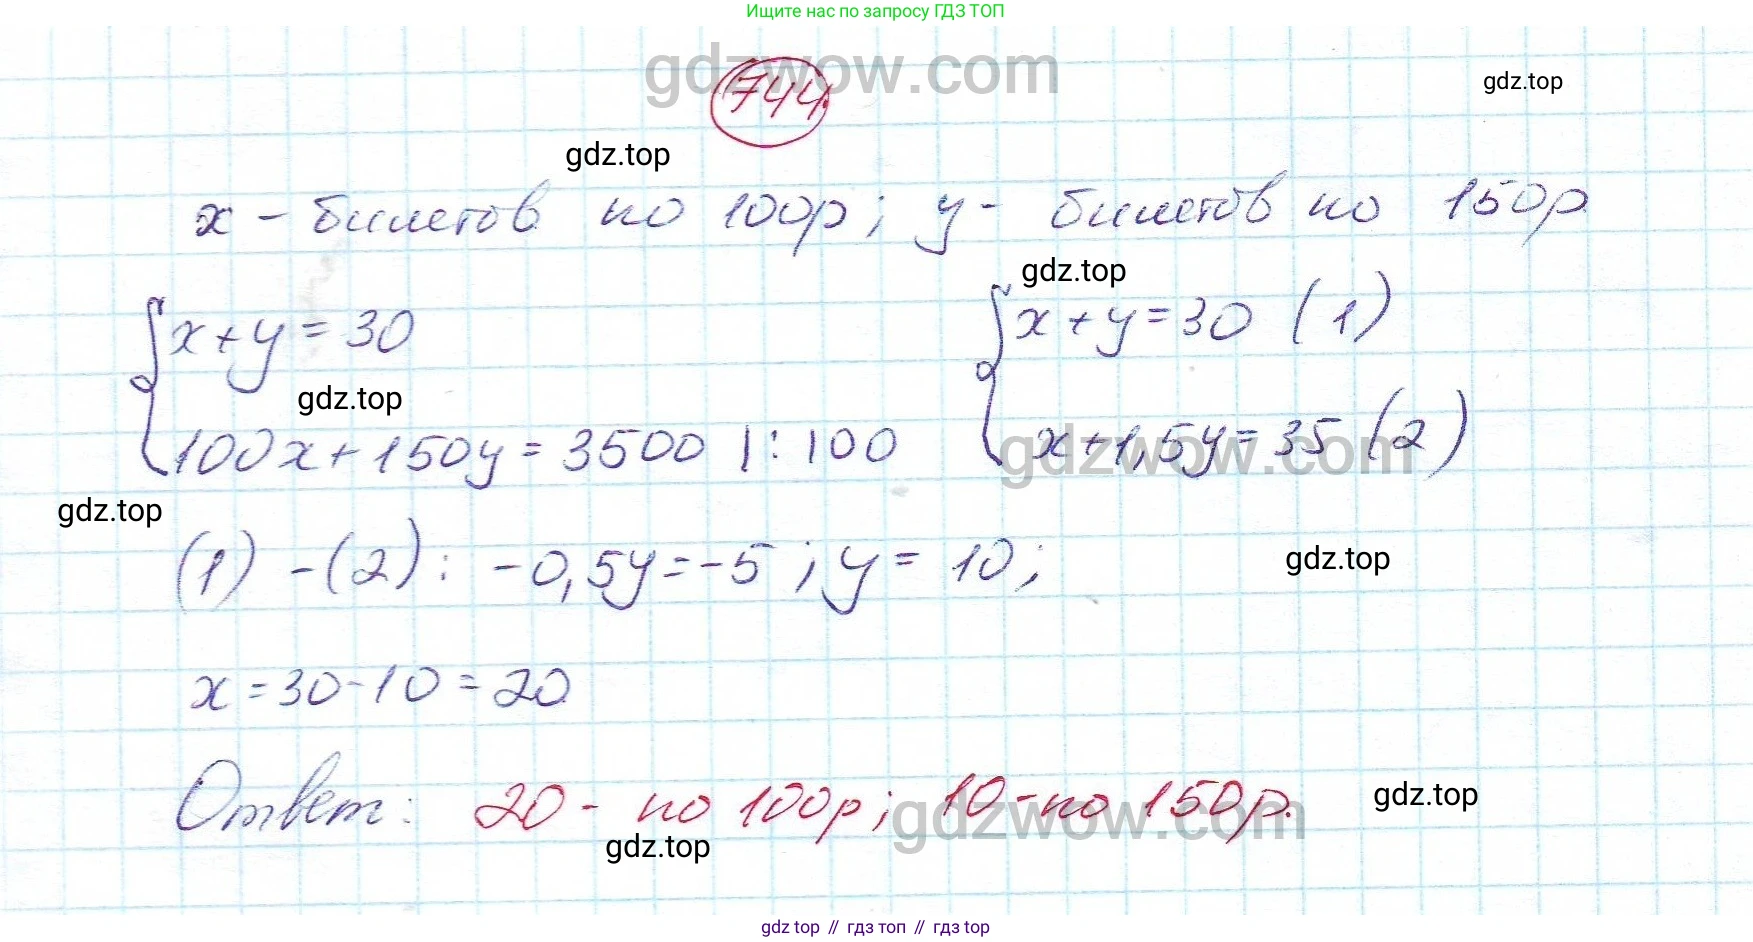 Ищите нас по запросу ГДЗ ТОП
gdzwow.com
744.
gdz.top
gdz.top
x - билетов по 100р; y - билетов по 150р
gdz.top
{ x + y = 30 { x + y = 30 (1)
gdz.top
100x + 150y = 3500 |: 100 x + 1,5y = 35 (2)
gdzwow.com
gdz.top
(1) - (2): -0,5y = -5; y = 10;
gdz.top
x = 30 - 10 = 20
Ответ: 20 - по 100р; 10 - по 150р.
gdzwow.com
gdz.top
gdz.top
gdz top // гдз топ // гдз top